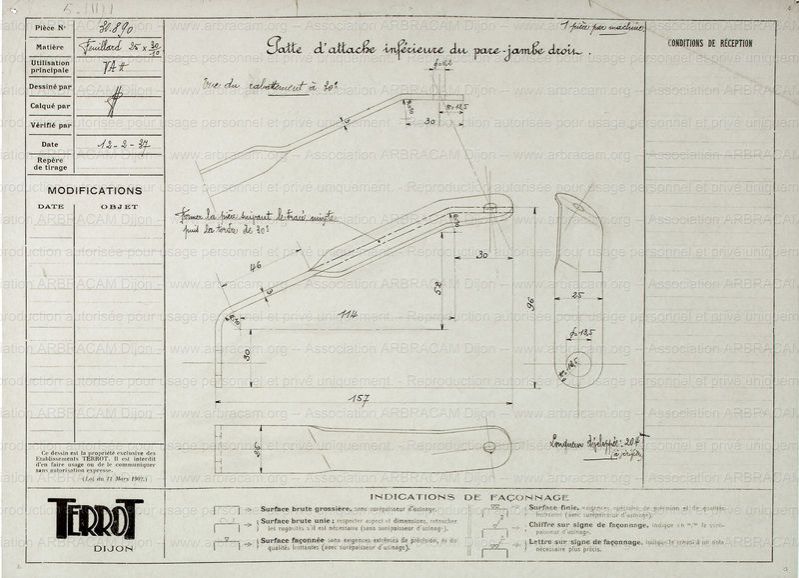 Pièce N° 30.890
Matière Feuillard 25 x 30/10
Utilisation principale VAA
Dessiné par
Calqué par
Vérifié par
Date 12-2-37
Repère de tirage
MODIFICATIONS
DATE OBJET
Ce dessin est la propriété exclusive des
Etablissements TERROT. Il est interdit
d'en faire usage ou de le communiquer
sans autorisation expresse.
(Loi du 11 Mars 1902.)
TERROT
DIJON
1 pièce par machine
Patte d'attache inférieure du pare-jambe droit.
Vue du rabattement à 30°
30
Former la pièce suivant le tracé mixte
puis la tordre de 30°
46
3
30
114
52
30
96
157
25
Longueur développée: 204
CONDITIONS DE RÉCEPTION
INDICATIONS DE FAÇONNAGE
Surface brute grossière, sans surépaisseur d'usinage.
Surface brute unie; respecter aspect et dimensions, retoucher
les rugosités s'il est nécessaire (sans surépaisseur d'usinage).
Surface façonnée sans exigences extrêmes de précision, ni de
qualités frottantes (avec surépaisseur d'usinage).
Surface finie, exigences spéciales de précision et de qualités
frottantes (avec surépaisseur d'usinage).
Chiffre sur signe de façonnage, indique en
paisseur d'usinage.
Lettre sur signe de façonnage, indique
nécessaire plus précis.
www.arbracam.org – Association ARBRACAM Dijon – Reproduction autorisée pour usage personnel et privé uniquement